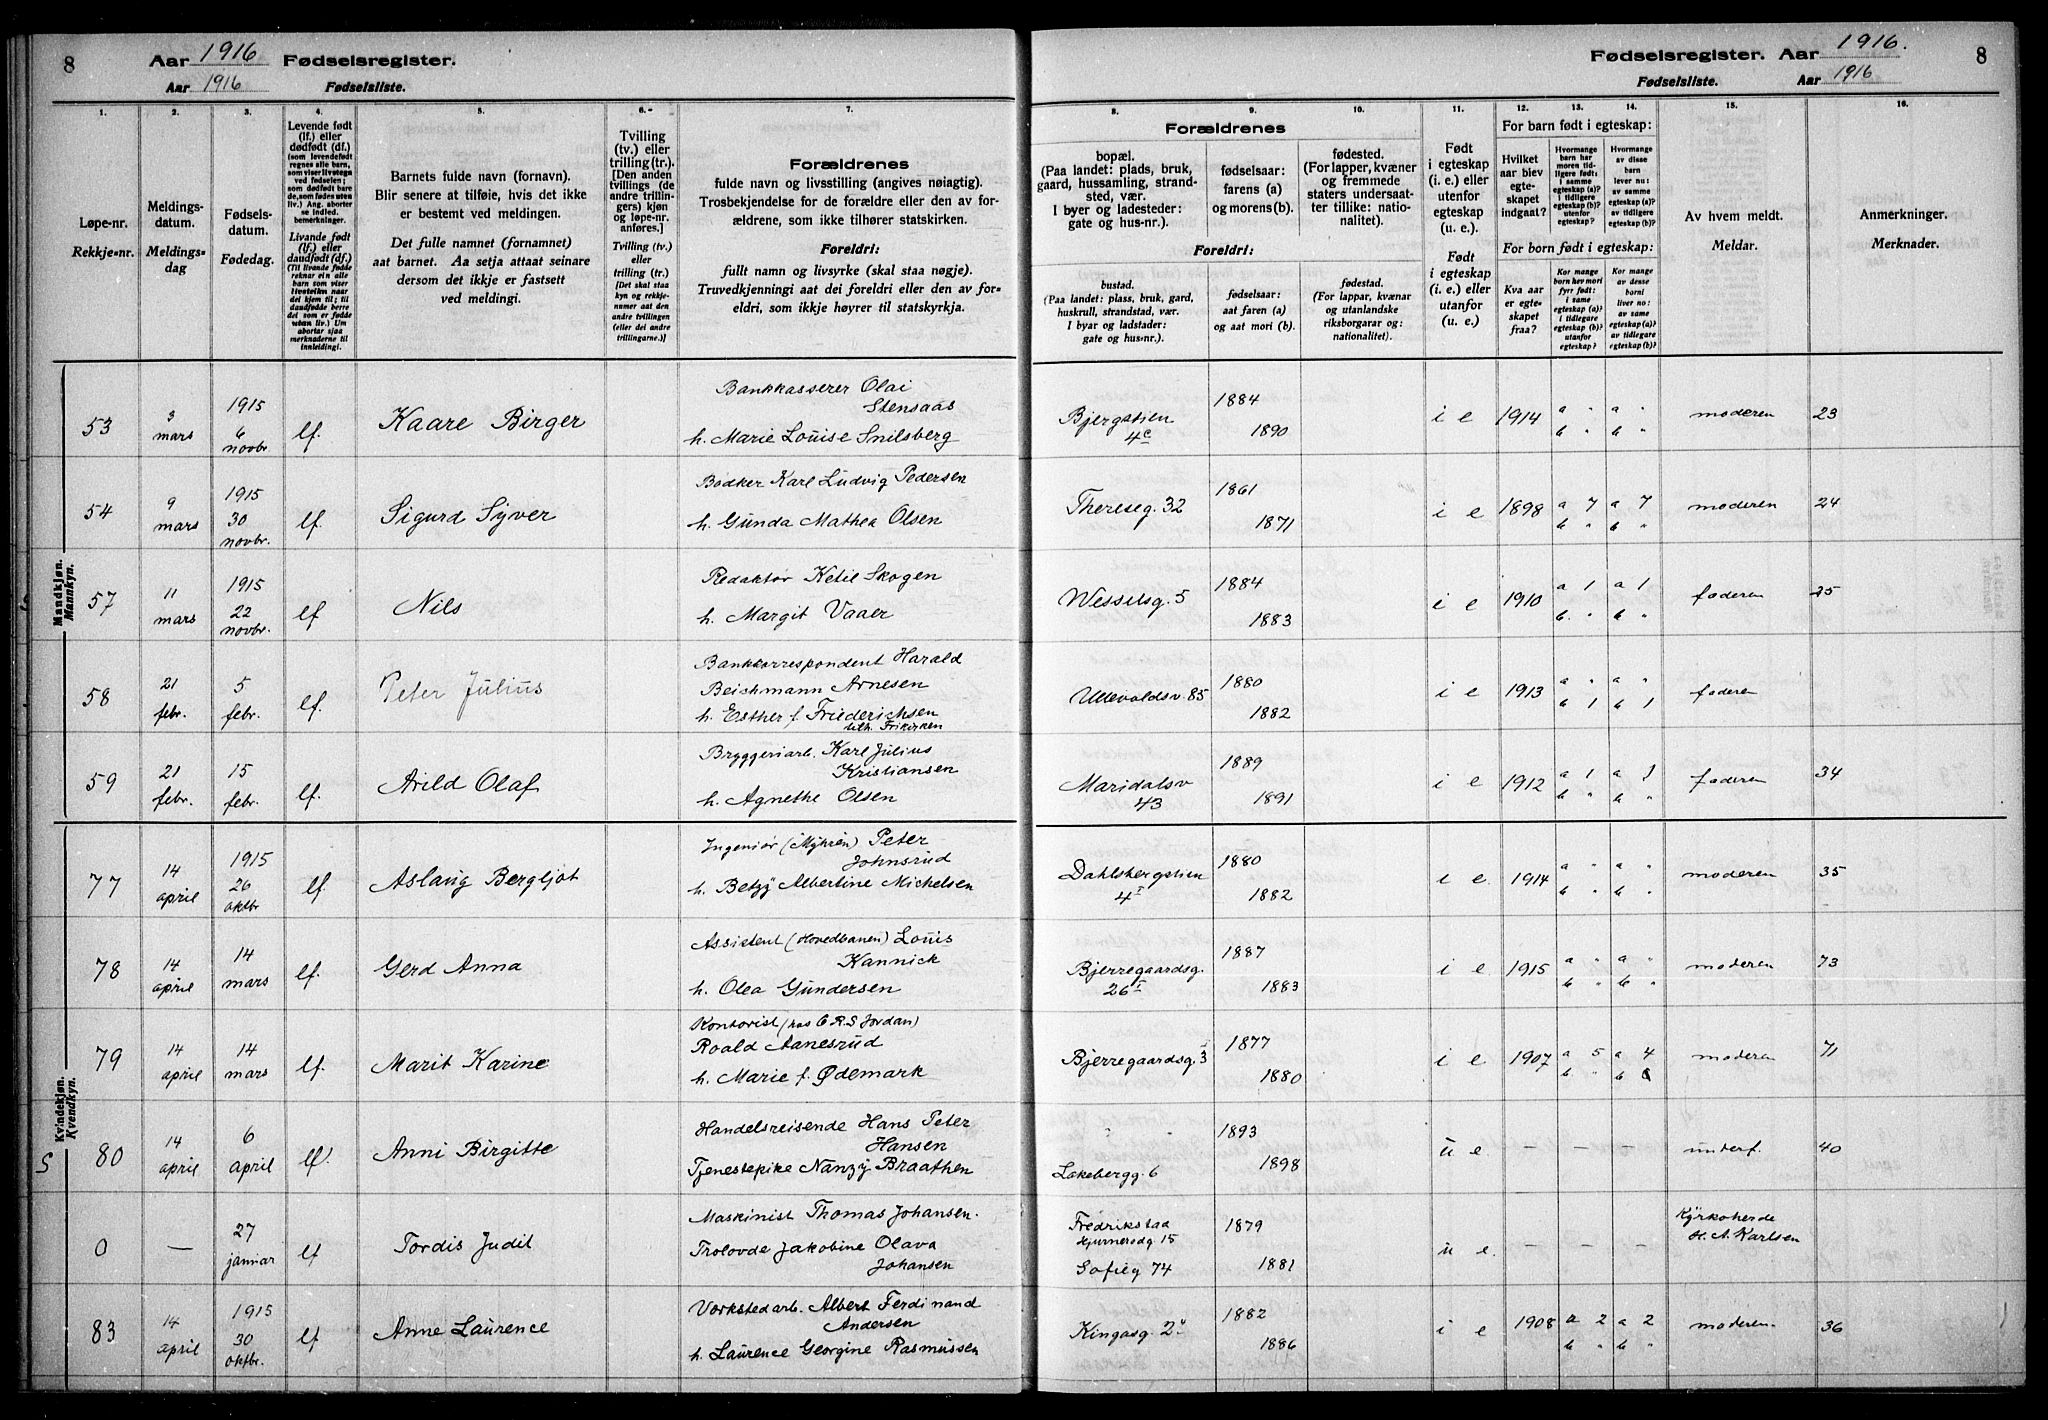 8
Aar 1916 Fødselsregister.
Aar 1916 Fødselsliste.
1.
Løpe-nr.
Rekkje-nr.
2.
Meldings-
datum.
Meldings-
dag
3.
Fødsels-
datum.
Fødedag.
4.
Levende født
(lf.) eller
dødfødt (df.)
(som levendefødt
regnes alle barn,
som viser livstegn
ved fødselen;
som dødfødt bare
de, som fødes uten
liv.) Ang. aborter
se indled.
bemerkninger.
Livande født
(lf.) eller
daudfødt (df.)
(Til livande fødde
reknar ein alle
barn som viser
livsteikn naar
dei kjem til; til
daudfødde berre
dei som er fødde
utan liv.) Um
abortar sjaa
merknaderne til
innleiding!
5.
Barnets fulde navn (fornavn).
Blir senere at tilføie, hvis det ikke
er bestemt ved meldingen.
Det fulle namnet (fornamnet)
aat barnet. Aa setja attaat seinare
dersom det ikkje er fastsett
ved meldingi.
6.
Tvilling
(tv.) eller
trilling (tr.).
[Den anden
tvillings (de
andre trillin-
gers) kjøn
og løpe-nr.
anføres.]
Tvilling (tv.)
eller
trilling (tr.)
[Det skal staa
kyn og rekkje-
numer aat den
andre tvillingen
(eller dei andre
trillingarne.)]
7.
Forældrenes
fulde navn og livsstilling (angives nøiagtig).
Trosbekjendelse for de forældre eller den av for-
ældrene, som ikke tilhører statskirken.
Foreldri:
fullt namn og livsyrke (skal staa nøgje).
Truvedkjenningi aat dei foreldri eller den av for-
eldri, som ikkje høyrer til statskyrkja.
Mandkjøn.
Mannkyn.
53
3
mars
1915
6
novbr
lf.
Kaare Birger
Bankkasserer Olai
Stensaas
h. Marie Louise Snilsberg
54
9
mars
1915
30
novbr.
lf.
Sigurd Syver
Bødker Karl Ludvig Pedersen
h. Gunda Mathea Olsen
57
11
mars
1915
22
novbr.
lf
Nils
Redaktør Ketil Skogen
h. Margit Vaaer
58
21
febr.
5
febr.
lf.
Peter Julius
Bankkorrespondent Harald
Beichmann Arnesen
h. Esther f. Friederichsen
luth. Frikirken
59
21
febr.
15
febr.
lf.
Arild Olaf
Bryggeriarb. Karl Julius
Kristiansen
h. Agnethe Olsen
Kvindekjøn.
Kvendkyn.
77
14
april
1915
26
oktbr
lf.
Aslaug Bergljot
Ingeniør (Myhren) Peter
Johnsrud
h. Betzy Albertine Michelsen
78
14
april
14
mars
lf.
Gerd Anna
Assistent (Hovedbanen) Louis
Kannick
h. Olea Gundersen
79
14
april
14
mars
lf.
Marit Karine
Kontorist (hos C.R.S Jordan)
Roald Aanesrud
h. Marie f. Ødemark
S
80
14
april
6
april
lf.
Anni Birgitte
Handelsreisende Hans Peter
Hansen
Tjenestepike Nanzy Braathen
0
—
27
januar
lf
Tordis Judit
Maskinist Thomas Johansen.
Trolovde Jakobine Olava
Johansen
83
14
april
1915
30
oktbr.
lf
Anne Laurence
Verkstedarb. Albert Ferdinand
Andersen
h. Laurence Georgine Rasmussen
Fødselsregister. Aar 1916.
8
Fødselsliste. Aar 1916
Forældrenes
8.
bopæl.
(Paa landet: plads, bruk,
gaard, hussamling, strand-
sted, vær.
I byer og ladesteder:
gate og hus-nr.).
9.
fødselsaar:
farens (a)
og morens (b).
10.
fødested.
(For lapper, kvæner
og fremmede
staters undersaat-
ter tillike: natio-
nalitet).
Foreldri:
bustad.
(Paa landet: plass, bruk, gard,
huskrull, strandstad, vær.
I byar og ladstader:
gate og hus-nr.).
fødselsaar:
aat faren (a)
og aat mori (b).
fødestad.
(For lappar, kvænar
og utanlandske
riksborgarar og:
nationalitet).
11.
Født
i egteskap
(i. e.) eller
utenfor
egteskap
(u. e.).
Født
i egteskap
(i. e.) eller
utanfor
egteskap
(u. e.).
For barn født i egteskap:
12.
Hvilket
aar blev
egte-
skapet
indgaat?
13.
Hvormange
barn har
moren tid-
ligere født:
i samme
egteskap (a)?
utenfor
egteskap (b)?
14.
Hvormange
av disse
barn
lever nu:
av samme
egteskap (a)?
av tidligere
egteskap (b)?
For born født i egteskap:
Kva aar
er egte-
skapet
fraa?
Kor mange
born hev mori
fyrr født:
i same
egteskap (a)?
i tidlegare
egteskap (b)?
utanfor
egteskap?
Kor mange
av desse
borni
liver no:
av same
egteskap (a)?
av tidlegare
egteskap (b)?
15.
Av hvem meldt.
Meldar.
16.
Anmerkninger.
Merknader.
Bjergstien
4c
1884
1890
i e
1914
a " a "
b " b "
moderen
23
Thereseg. 32
1861
1871
i e
1898
a 7 a 7
b " b "
moderen
24
Wesselsg. 5
1884
1883
i e
1910
a 1 a 1
b. " b "
faderen
25
Ullevoldsv. 85
1880
1882
i e
1913
a " a "
b 1 b 1
faderen
Maridalsv
43
1889
1891
i e
1912
a 1 a 1
b " b "
faderen
34
Dahlsbergstien
4 I
1880
1882
i e.
1914
a " a "
b " b "
moderen
35
Bjerregaardsg.
26 I
1887
1883
i e
1915
a " a "
b " b "
moderen
73
Bjerregaardsg. 3
1877
1880
i e
1907
a 5 a 4
b. " b
moderen
71
" "
Lakebergg. 6
1893
1898
u e.
— — —
underf.
40
Fredrikstad
Sofieg 74
1879
1881
u e.
— — —
Kyrkoherde
H. A. Karlsen
Kingosg. 2"
1882
1886
i e
1908
a 2 a 2
b " b "
moderen.
36